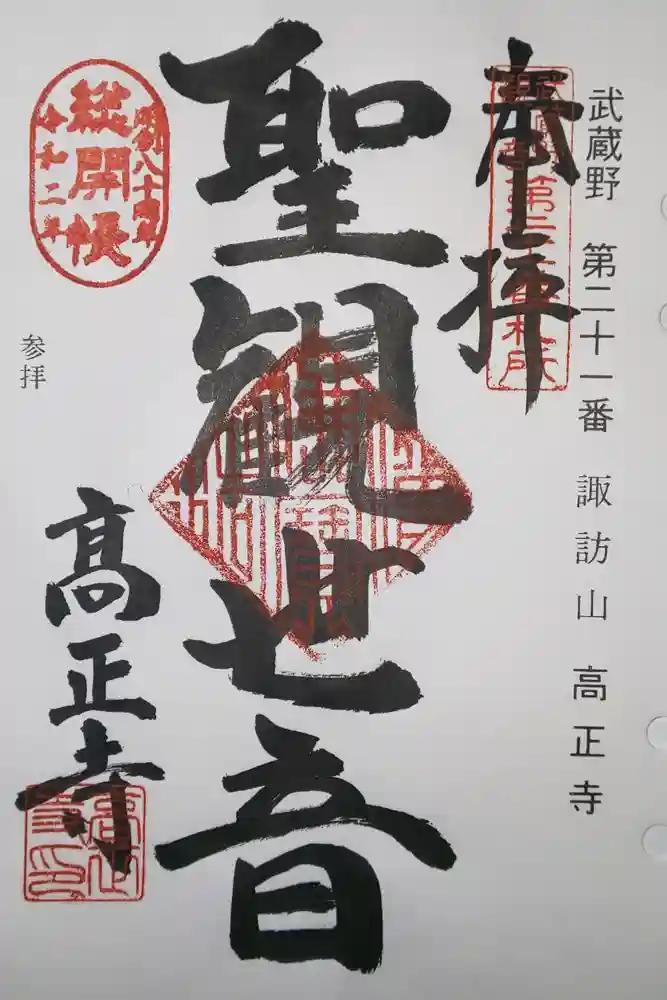 武蔵野 第二十一番 諏訪山 高正寺
奉拝
聖観世音
総開帳
令和二年
参拝
髙正寺